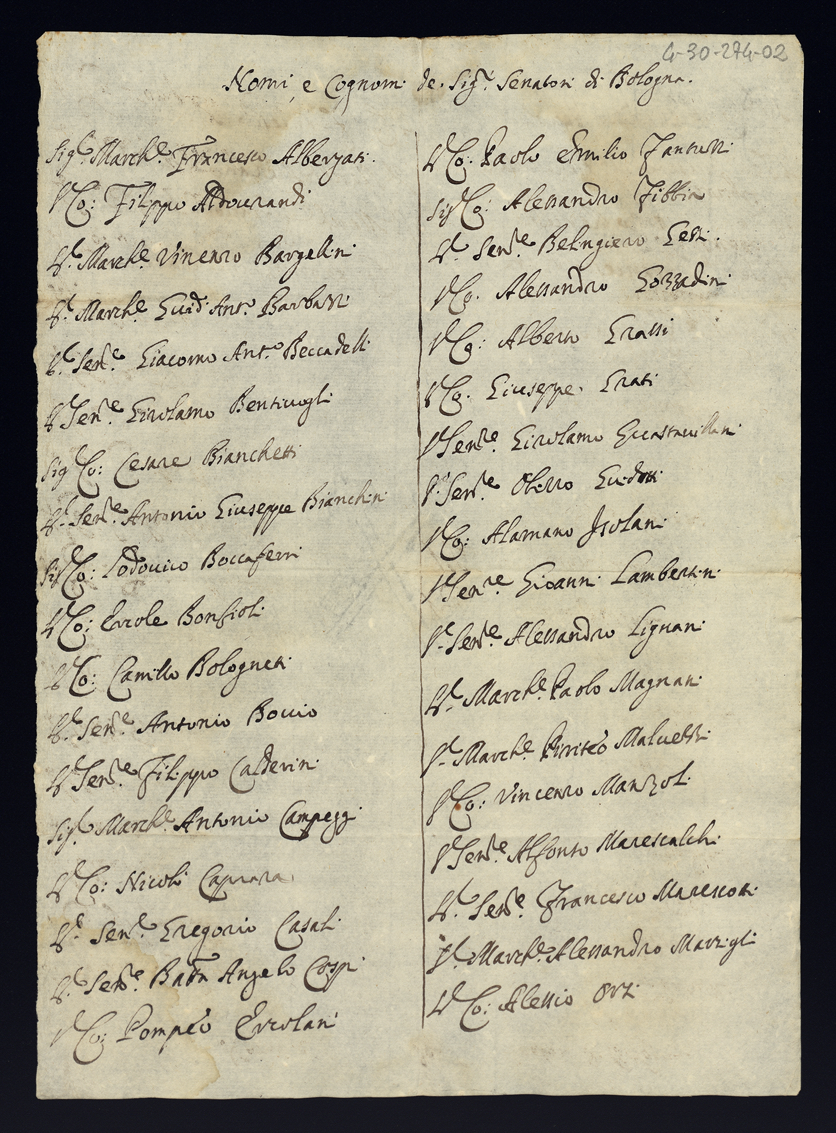 4-30-274-02
Nomi, e Cognomi de Sig.ri Senatori di Bologna.
Sig.r March.e Francesco Albergati.
S.r Co: Filippo Aldourandi
S.r March.e Vincenzo Bargellini
S.r March.e Guid'Ant.o Barbazzi
S.r Sen.re Giacomo Ant.o Beccadelli
S.r Sen.re Girolamo Bentiuogli
Sig.r Co: Cesare Bianchetti
S.r Sen.re Antonio Giuseppe Bianchini
Sig.r Co: Lodouico Boccaferri
S.r Co: Ercole Bonfioli
S.r Co: Camillo Bologneti
S.r Sen.re Antonio Bouio
S.r Sen.re Filippo Calderini
Sig.r March.e Antonio Campeggi
S.r Co: Nicolò Caprara
S.r Sen.re Gregorio Casali
S.r Sen.re Batta Angelo Cospi
S.r Co: Pompeo Ercolani
S.r Co: Paolo Emilio Fantuzzi
Sig.r Co: Alessandro Fibbia
S.r Sen.re Belingiero Gessi.
S.r Co. Alessandro Gozzadini
S.r Co: Alberto Grassi
S.r Co. Giuseppe Grati
S.r Sen.re Girolamo Guastauillani
S.r Sen.re Obizzo Guidotti
S.r Co: Alamano Isolani
S.r Sen.re Gioanni Lambertini
S.r Sen.re Alessandro Lignani
S.r March.e Paolo Magnani
S.r March.e Pirriteo Maluezzi
S.r Co: Vincenzo Manzoli
S.r Sen.re Alfonso Marescalchi
S.r Sen.re Francesco Marescotti
S.r March.e Alessandro Marsigli
S.r Co: Alessio Orsi